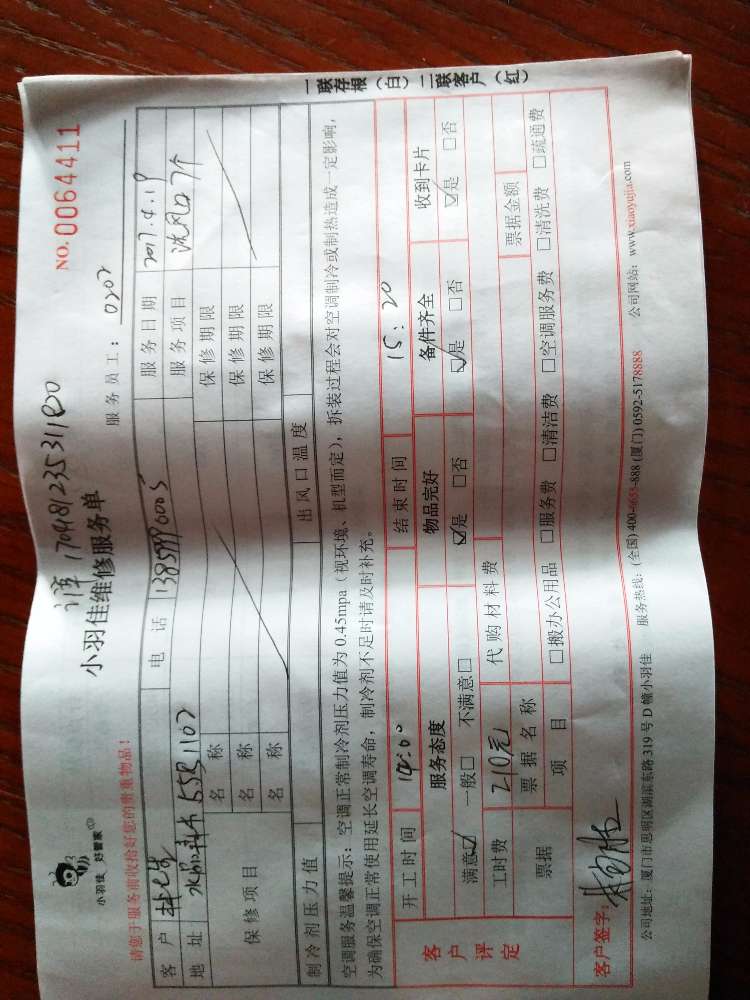 小羽佳 好管家
NO.0064411
小羽佳维修服务单
服务员工：0202
请您于服务前收拾好您的贵重物品！
客户 电话 服务日期 2017.4.19
地址 55B1102 服务项目 洗风口7个
保修项目 名称 保修期限
名称 保修期限
名称 保修期限
制冷剂压力值 出风口温度
空调服务温馨提示：空调正常制冷剂压力值为0.45mpa（视环境、机型而定），拆装过程会对空调制冷或制热造成一定影响，
为确保空调正常使用延长空调寿命，制冷剂不足时请及时补充。
客户评定 开工时间 14:00 结束时间 15:20
服务态度 物品完好 备件齐全 收到卡片
满意☑ 一般□ 不满意□ ☑是 □否 ☑是 □否 ☑是 □否
工时费 210元 代购材料费
票据 票据名称 票据金额
项目 □搬办公用品 □服务费 □清洁费 □空调服务费 □清洗费 □疏通费
客户签字：
公司地址：厦门市思明区湖滨东路319号D幢小羽佳 服务热线：(全国)400-6655-888 (厦门)0592-5178888 公司网站：www.xiaoyujia.com
一联存根（白）二联客户（红）